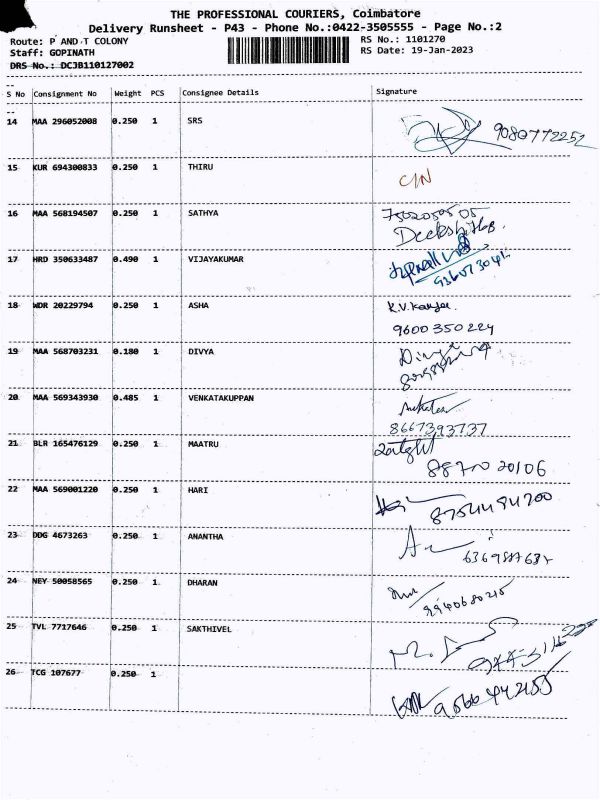 THE PROFESSIONAL COURIERS, Coimbatore
Delivery Runsheet - P43 - Phone No.:0422-3505555 - Page No.:2
Route: P AND T COLONY RS No.: 1101270
Staff: GOPINATH RS Date: 19-Jan-2023
DRS No.: DCJB110127002
S No Consignment No Weight PCS Consignee Details Signature
14 MAA 296052008 0.250 1 SRS 9080772252
15 KUR 694300833 0.250 1 THIRU C/N
16 MAA 568194507 0.250 1 SATHYA
17 HRD 350633487 0.490 1 VIJAYAKUMAR
18 WDR 20229794 0.250 1 ASHA
9600350224
19 MAA 568703231 0.180 1 DIVYA
20 MAA 569343930 0.485 1 VENKATAKUPPAN
8667393737
21 BLR 165476129 0.250 1 MAATRU
22 MAA 569001220 0.250 1 HARI
23 DDG 4673263 0.250 1 ANANTHA
24 NEY 50058565 0.250 1 DHARAN
25 TVL 7717646 0.250 1 SAKTHIVEL
26 TCG 107677 0.250 1